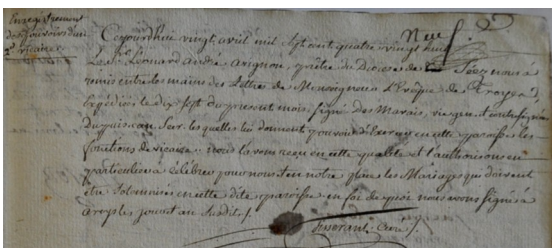 Enregistrement
des Pouvoirs d'un
2d vicaire
Neuf
Cejourdhui vingt avril mil sept cent quatre vingt huit
Le Sr Leonard André Avignon, prêtre du Diocese de Séez nous a
remis entre les mains des Lettres de Monseigneur L'Evêque de Troyes,
Expédiées le dix sept du present mois, signé des Marais, vic. gen. et contresigné
Dupuis an Ser. lesquelles lui donnent pouvoir d'Exercer en cette paroisse les
fonctions de vicaire: nous l'avons reçu en cette qualité et l'authorisons en
particulier a célébrer pour nous et en notre place les Mariages qui doivent
être solemnisés en cette dite paroisse en foi de quoi nous avons signé à
jour et an susdit.
curé